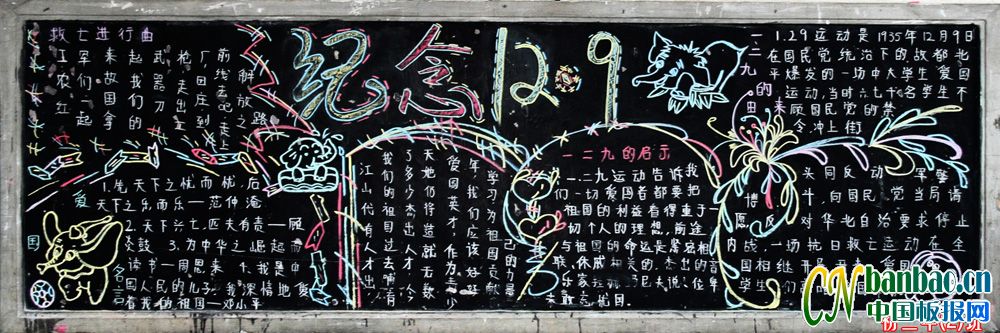 救亡进行曲
工农红
军们一起
来故国
起我们拿的
武器
枪走出立
厂田庄到
前线去吧走上
解放之路
纪念12.9
一二九的由来
1.29运动是1935年12月9日
在国民党统治下的故都北
平爆发的一场中大学生爱国
运动,当时六七千名学生不
顾国民党的禁
令,冲上街
头同反动军警
斗,向国民党当局请
愿,反对华北自治要求停止
内战,一场抗日救亡运动在全
国相继开
爱国名言
1.先天下之忧而忧,后
天下之乐而乐—范仲淹
2.天下兴亡,匹夫有责—顾
炎武 3.为中华之崛起而
读书—周恩来 4.我是中国
人民的儿子,我深情地爱
着我的祖国—邓小平
江山代有人才出,
我们的祖国过去哺育
了多少杰出人才,今
天她仍将造就无数
爱国英才,作为青少
年,我们应该好好
学习,为祖国贡献
己的力量
一二九的启示
一二九运动告诉我
们一切爱国者都要把
祖国的利益看得重于一
切个人的理想,前途
与祖国的命运是紧密相
联,休戚相关的,杰出的音
乐家
敢忘祖国
CNbanbao.cn
中国板报网